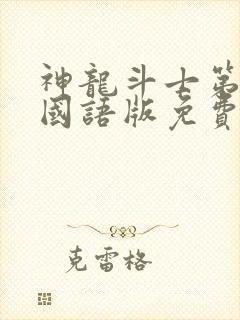 神龍斗士第
國語版免費
克雷格